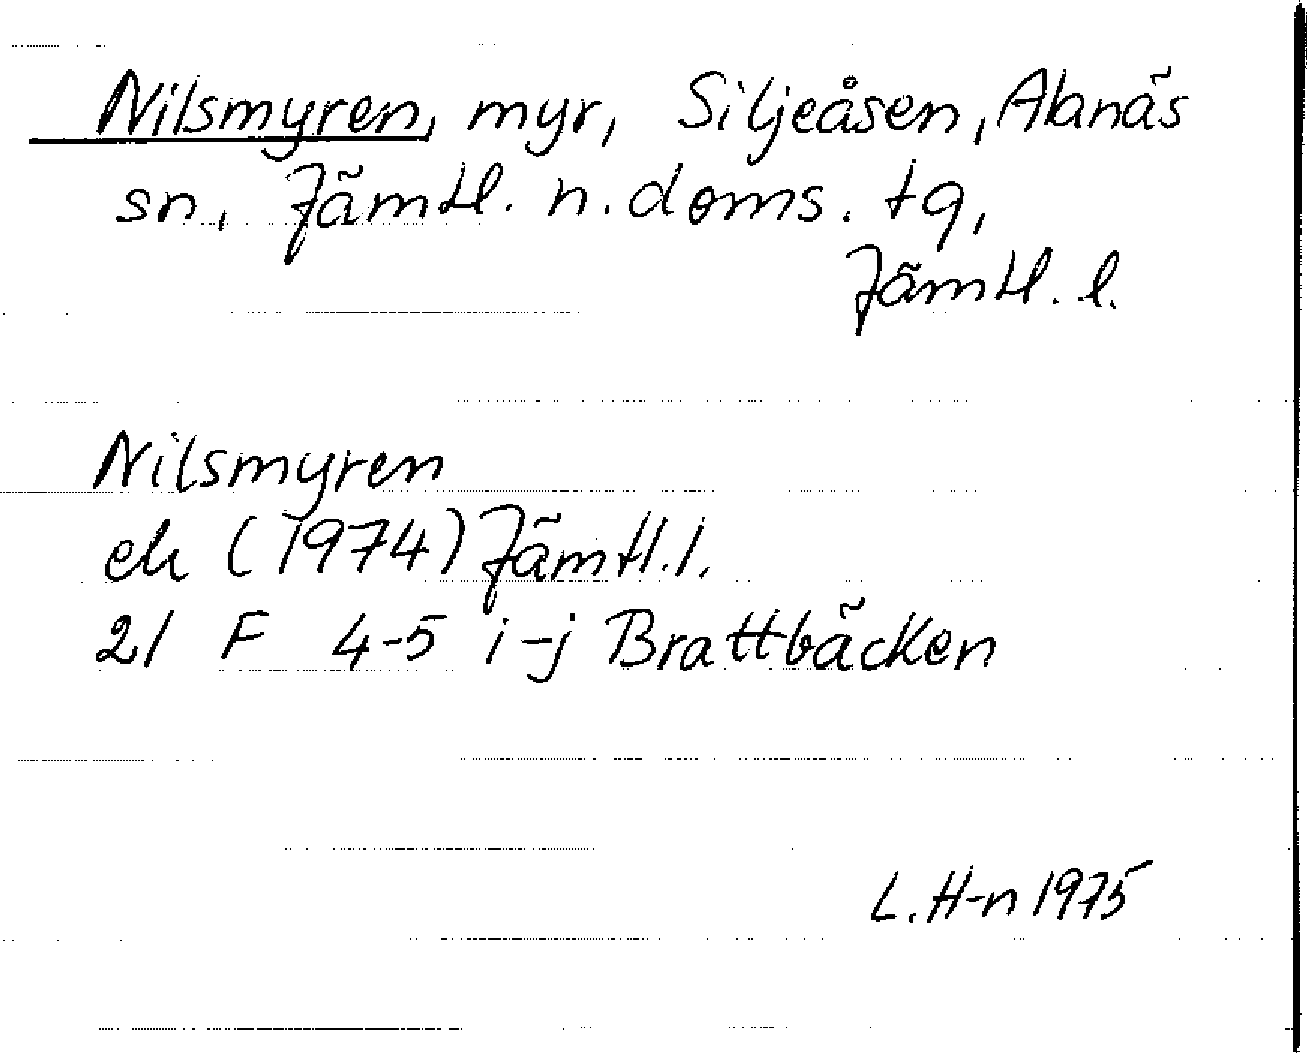 Nilsmyren, myr, Siljeåsen, Alanäs
sn, Jämtl. n. doms. tg,
Jämtl. l.
Nilsmyren
ek (1974) Jämtl. l.
21 F 4-5 i-j Brattbäcken
L. H-n 1975